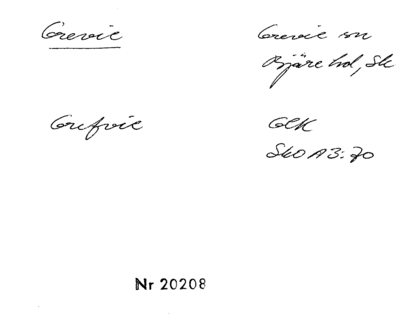 Grevie
Grevie sn
Bjäre hd, Sk
Grefvie
GEK
SkO A3:70
Nr 20208